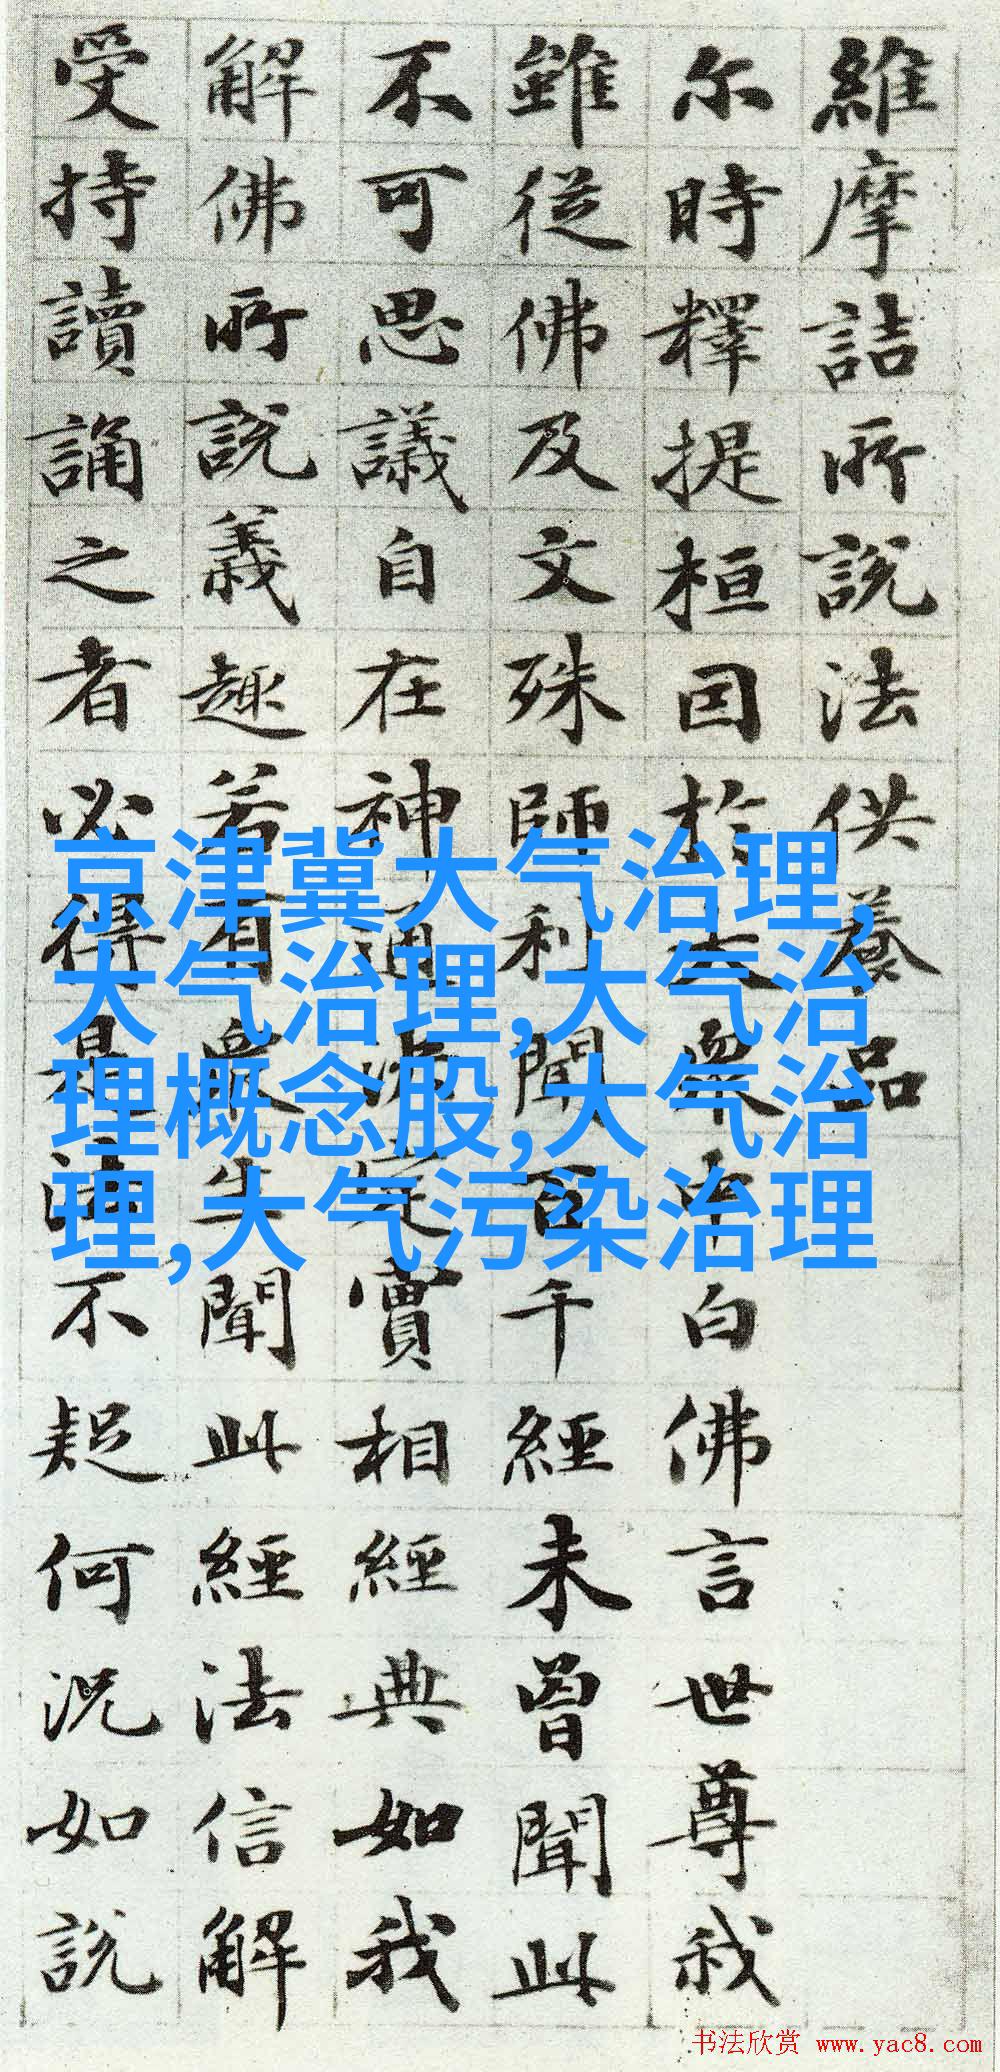 維摩詰所說法供養品
尓時釋提桓因於大衆中白佛言世尊我
雖從佛及文殊師利聞百千經未曾聞此
不可思議自在神通決定實相經典如我
解佛所說義趣若有衆生聞此經法信解
受持讀誦之者必得是法不疑何況如說
京津冀大气治理,
大气治理,大气治
理概念股,大气治
理,大气污染治理
书法欣赏 www.yac8.com